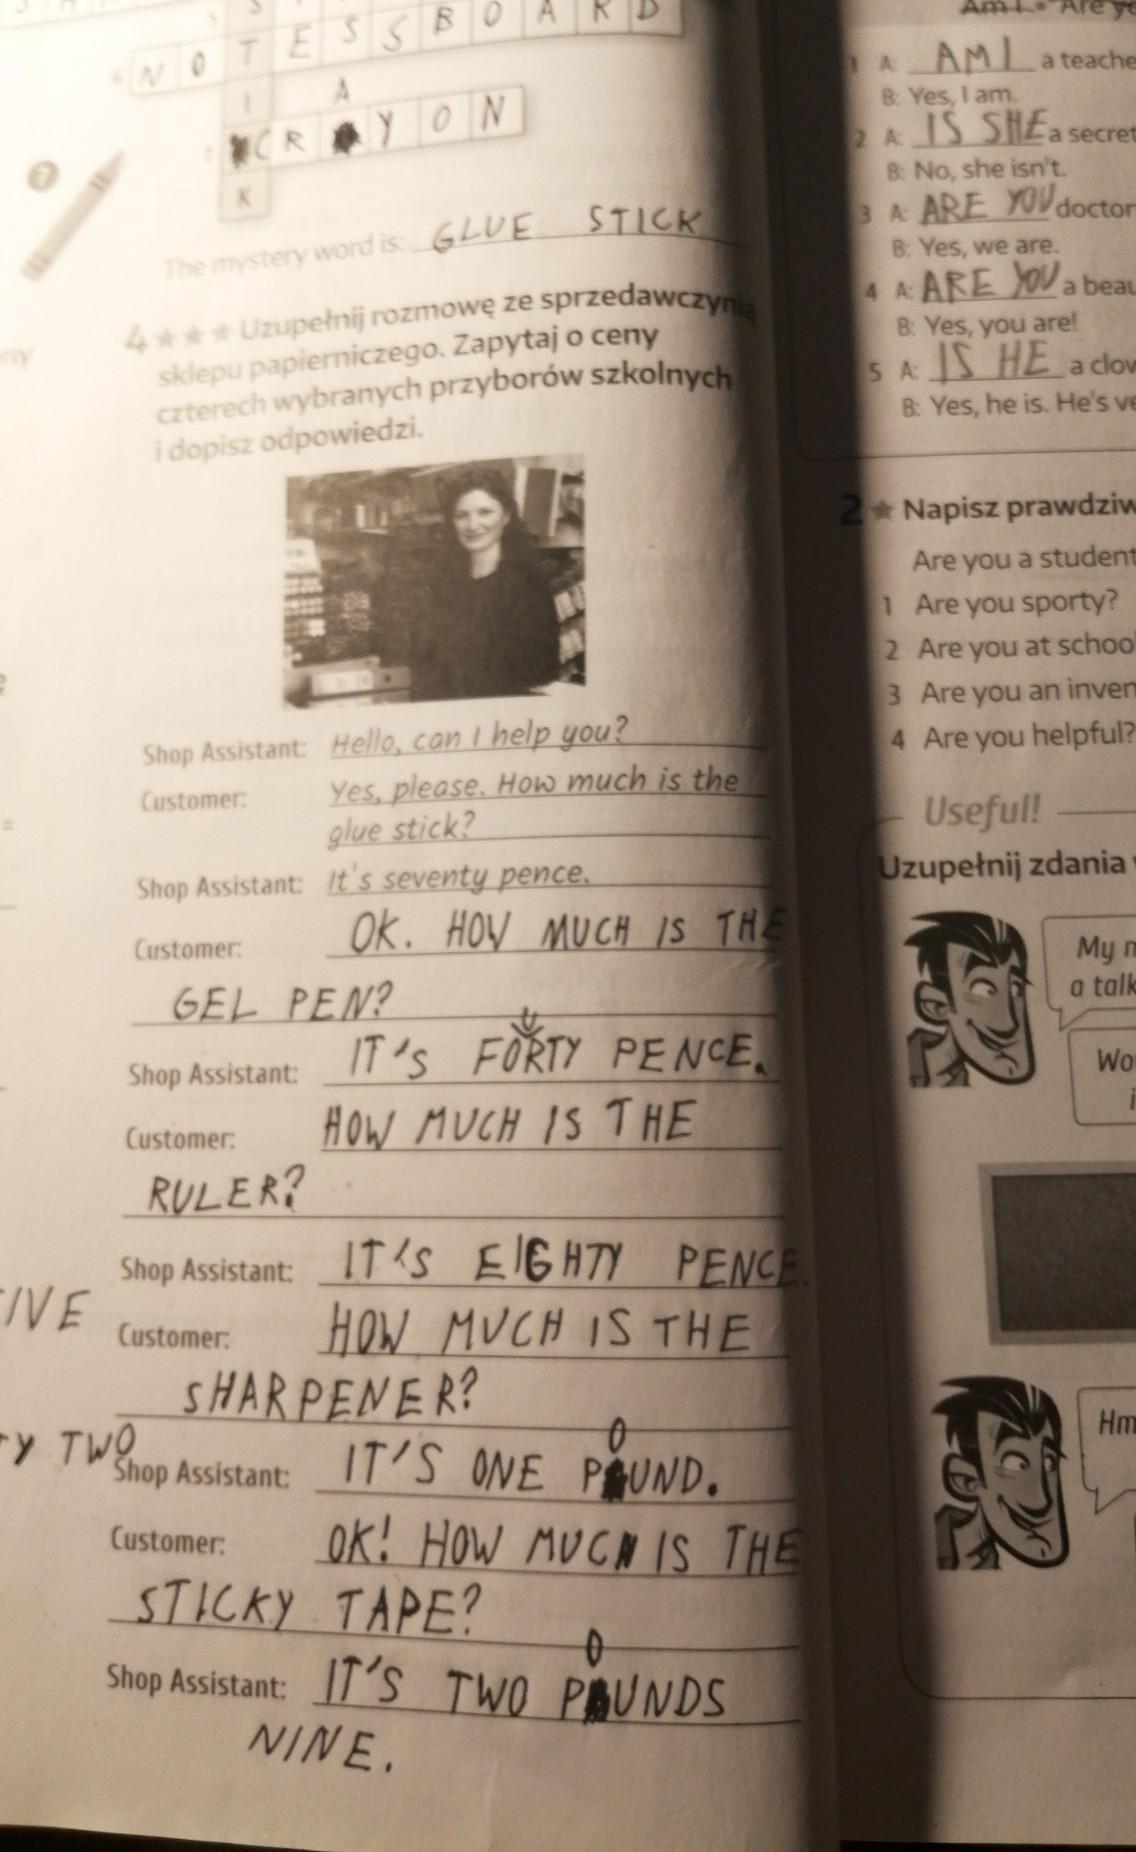 NOTESSBOARD
I
A
CRYON
7
K
The mystery word is: GLUE STICK
4 ★★★ Uzupełnij rozmowę ze sprzedawczynią
sklepu papierniczego. Zapytaj o ceny
czterech wybranych przyborów szkolnych
i dopisz odpowiedzi.
Shop Assistant: Hello, can I help you?
Customer: Yes, please. How much is the
glue stick?
Shop Assistant: It's seventy pence.
Customer: OK. HOW MUCH IS THE
GEL PEN?
U
Shop Assistant: IT'S FORTY PENCE.
Customer: HOW MUCH IS THE
RULER?
Shop Assistant: IT'S EIGHTY PENCE.
IVE
Customer: HOW MUCH IS THE
SHARPENER?
TY TWO
O
Shop Assistant: IT'S ONE PUND.
Customer: OK! HOW MUCH IS THE
STICKY TAPE?
O
Shop Assistant: IT'S TWO PUNDS
NINE.
Am I
Are
1 A: AM I a teache
B: Yes, I am.
2 A: IS SHE a secret
B: No, she isn't.
3 A: ARE YOU doctor
B: Yes, we are.
4 A: ARE YOU a beau
B: Yes, you are!
5 A: IS HE a clow
B: Yes, he is. He's ve
2 ★ Napisz prawdziw
Are you a student
1 Are you sporty?
2 Are you at schoo
3 Are you an inven
4 Are you helpful?
Useful!
Uzupełnij zdania
My n
a talk
Wo
i
Hm